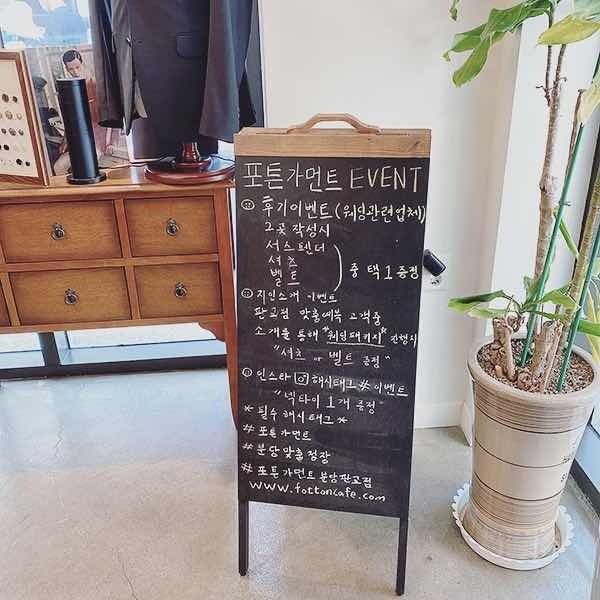 포튼가먼트 EVENT
후기이벤트(웨딩관련업체)
2곳 작성시
서스펜더
셔츠
벨트
중 택1 증정
지인소개 이벤트
판교점 맞춤예복 고객중
소개를 통해 "웨딩패키지" 진행시
"셔츠 or 벨트 증정"
인스타 해시태그 # 이벤트
"넥타이 1개 증정"
* 필수 해시태그 *
# 포튼가먼트
# 분당맞춤정장
# 포튼가먼트 분당판교점
www.fottoncafe.com